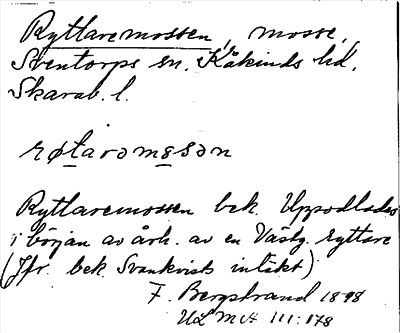 Ryttaremossen, mosse,
Sventorps sn. Kåkinds hd.
Skarab. l.
røtårəmɵsən
Ryttaremossen bek. Uppodlades
i början av årh. av en Västg. ryttare
(Jfr bek. Svankvists intäkt)
F. Bergstrand 1898
ULMA 111:178